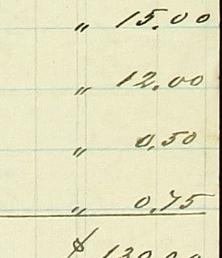 " 15.00
" 12.00
" 0.50
" 0.75
$